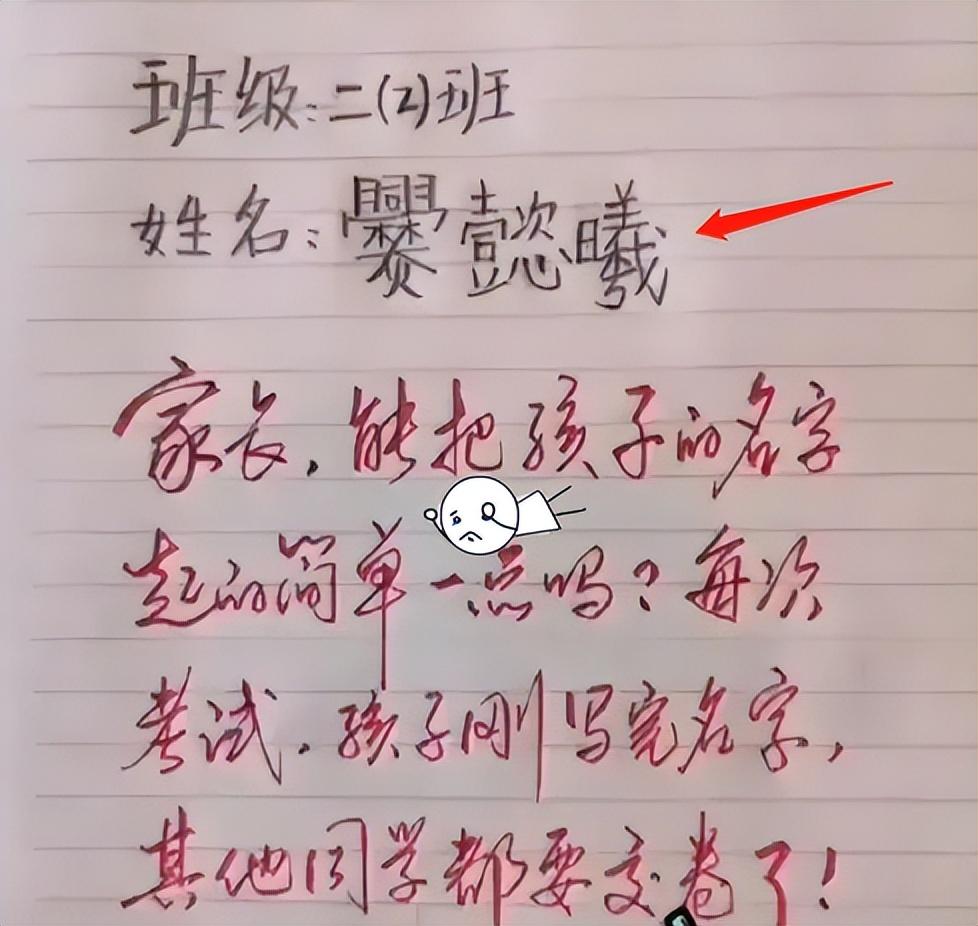 班级:二(2)班
姓名:爨懿曦
家长,能把孩子的名字
起的简单一点吗?每次
考试,孩子刚写完名字,
其他同学都要交卷了!